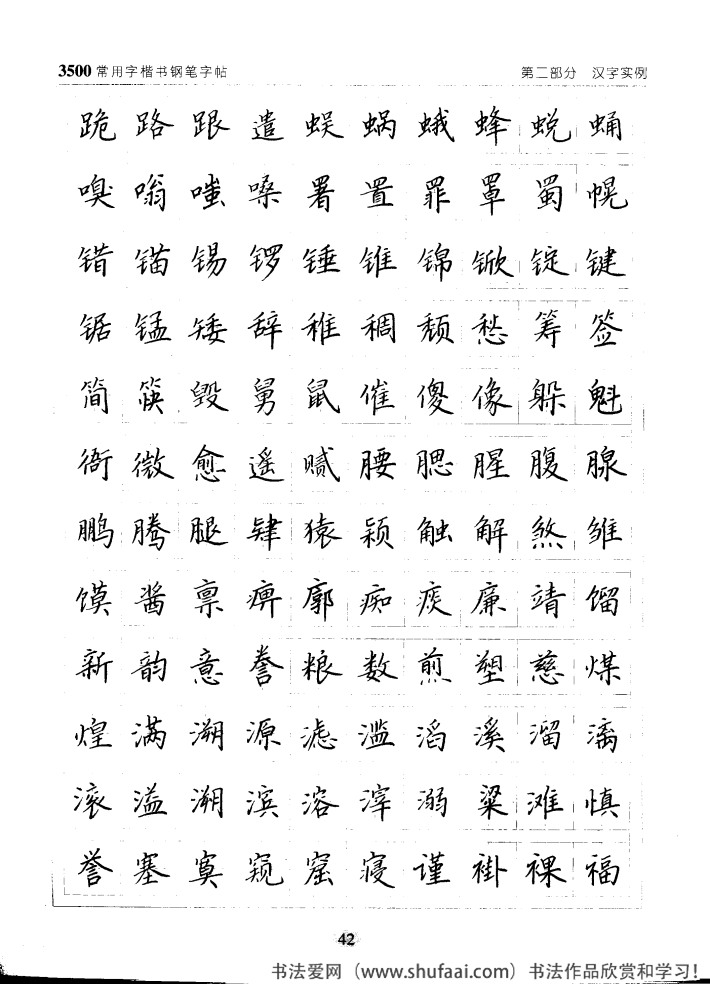 3500常用字楷书钢笔字帖 第二部分 汉字实例
跪路跟遣蜈蜗蛾蜂蜕蛹
嗅嗡嗤嗓署置罪罩蜀幌
错锚锡锣锤锥锦锨锭键
锯锰矮辞稚稠颓愁筹签
简筷毁舅鼠催傻像躲魁
衙微愈遥腻腰腮腥腹腺
鹏腾腿肆猿颖触解煞雏
馍酱禀痹廓痴痰廉靖馏
新韵意誊粮数煎塑慈煤
煌满溯源滤滥滔溪溜漓
滚溢溯滨溶滓溺粱滩慎
誉塞寞窥窟寝谨褂裸福
42
书法爱网（www.shufaai.com）书法作品欣赏和学习！